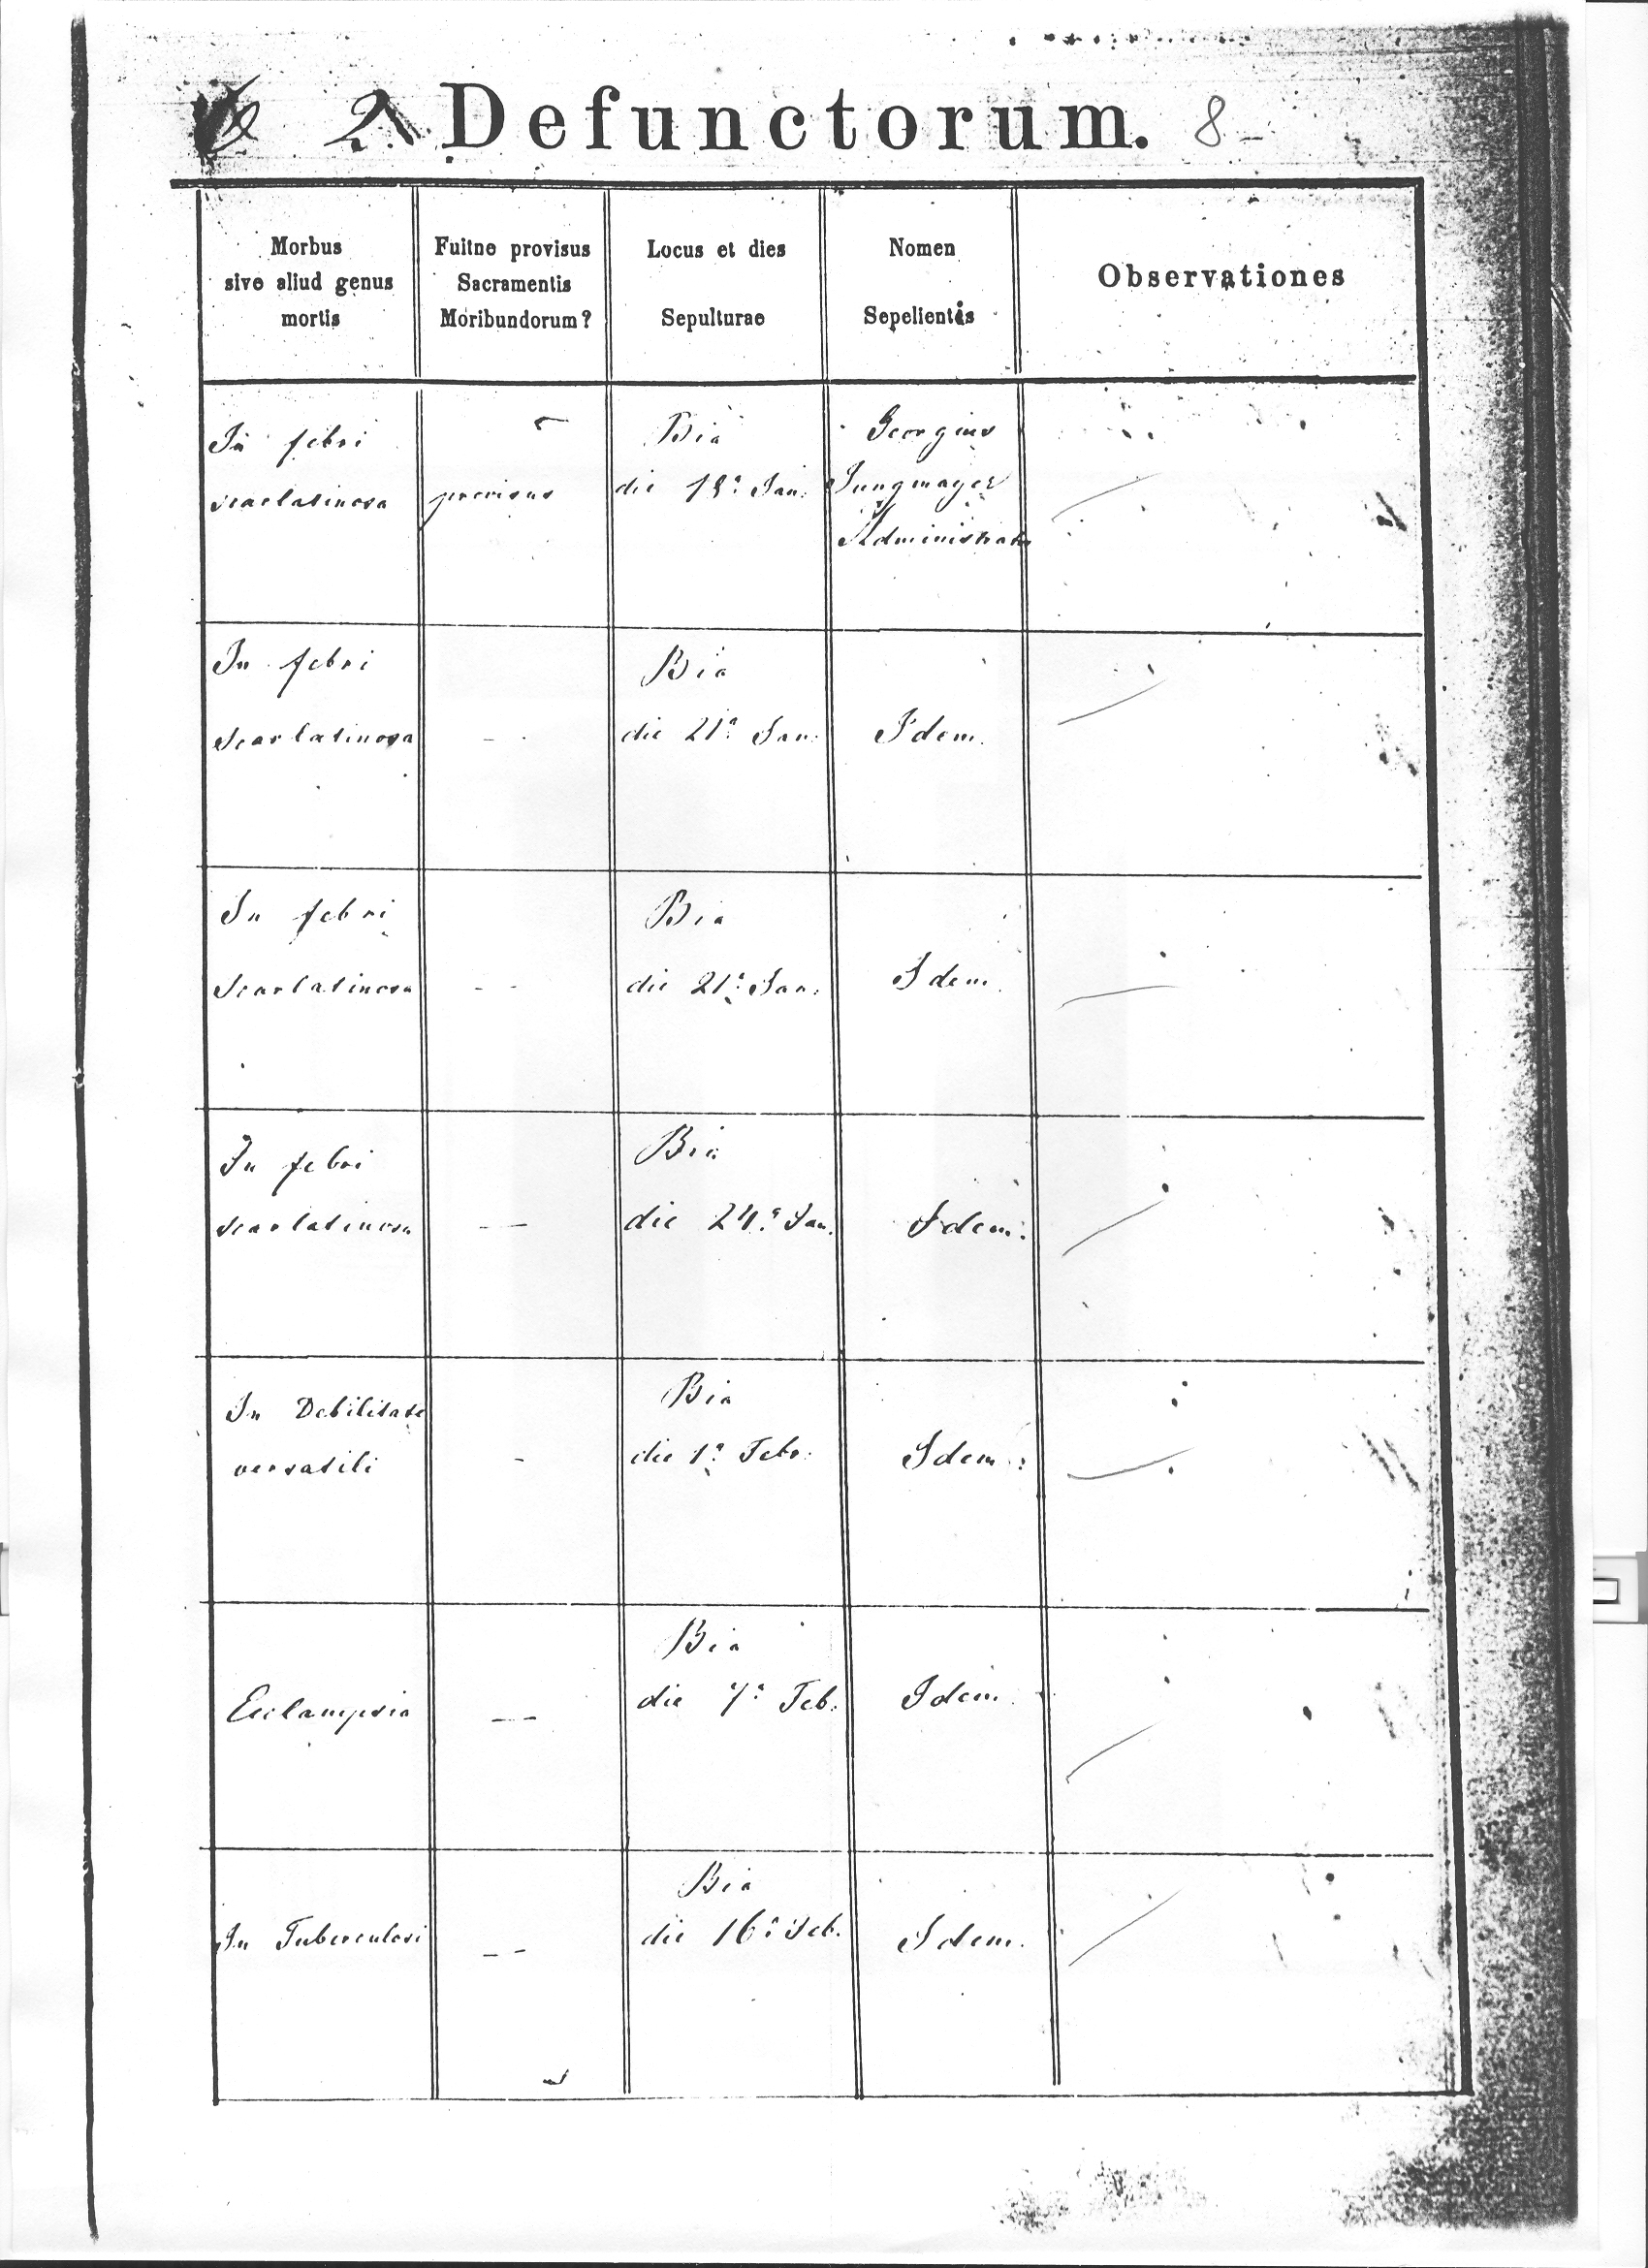 2 Defunctorum. 8
Morbus
sive aliud genus
mortis
Fuitne provisus
Sacramentis
Moribundorum?
Locus et dies
Sepulturae
Nomen
Sepelientis
Observationes
In febri
scarlatinosa
provisus
Bia
die 18ª Jan:
Georgius
Jungmayer
Administrator
In febri
scarlatinosa
-
Bia
die 21ª Jan:
Idem.
In febri
scarlatinosa
- -
Bia
die 21ª Jan:
Idem.
In febri
scarlatinosa
—
Bia
die 24ª Jan.
Idem.
In Debilitate
versatili
-
Bia
die 1ª Febr:
Idem:
Ecclampsia
—
Bia
die 7ª Feb:
Idem.
In Tuberculosi
- -
Bia
die 16ª Feb.
Idem.